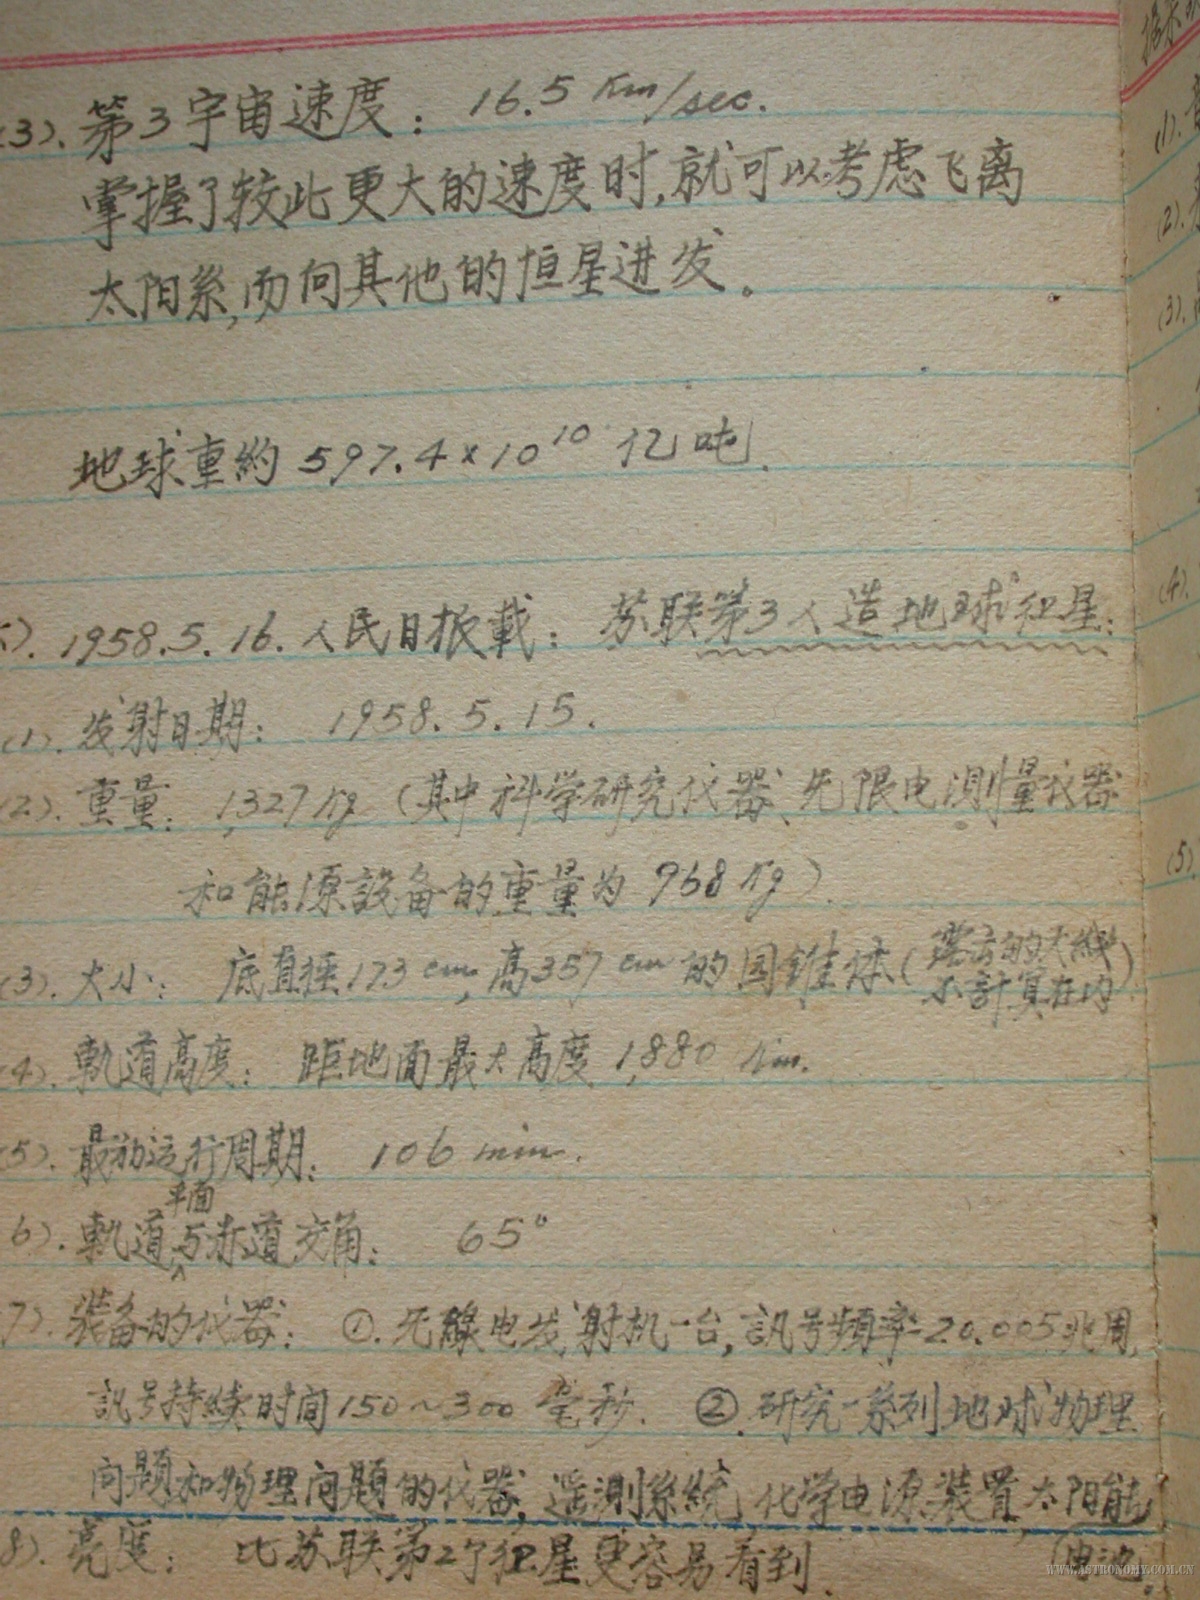 (3). 第3宇宙速度: 16.5 Km/sec.
掌握了较此更大的速度时,就可以考虑飞离
太阳系,而向其他的恒星进发。
地球重約 597.4×10¹⁰ 亿吨.
1958.5.16.人民日报載: 苏联第3人造地球卫星:
(1). 发射日期: 1958.5.15.
(2). 重量: 1,327 Kg (其中科学研究仪器、无限电測量仪器
和能源設备的重量为 968 Kg).
(3). 大小: 底直徑173 cm,高357 cm 的园錐体(
的天線
不計算在内)
(4). 軌道高度: 距地面最大高度 1,880 Km.
(5). 最初运行周期: 106 min.
平面
6). 軌道与赤道交角: 65°
7). 装备的仪器: ①.无線电发射机一台,訊号頻率=20.005兆周,
訊号持续时间150~300 毫秒. ②.研究一系列地球物理
问題和物理问題的仪器,遥測系統,化学电源装置,太阳能
电池.
8). 亮度: 比苏联第2个卫星更容易看到.
据
(1).
(2).
(3).
(4).
(5).
WWW.ASTRONOMY.COM.CN